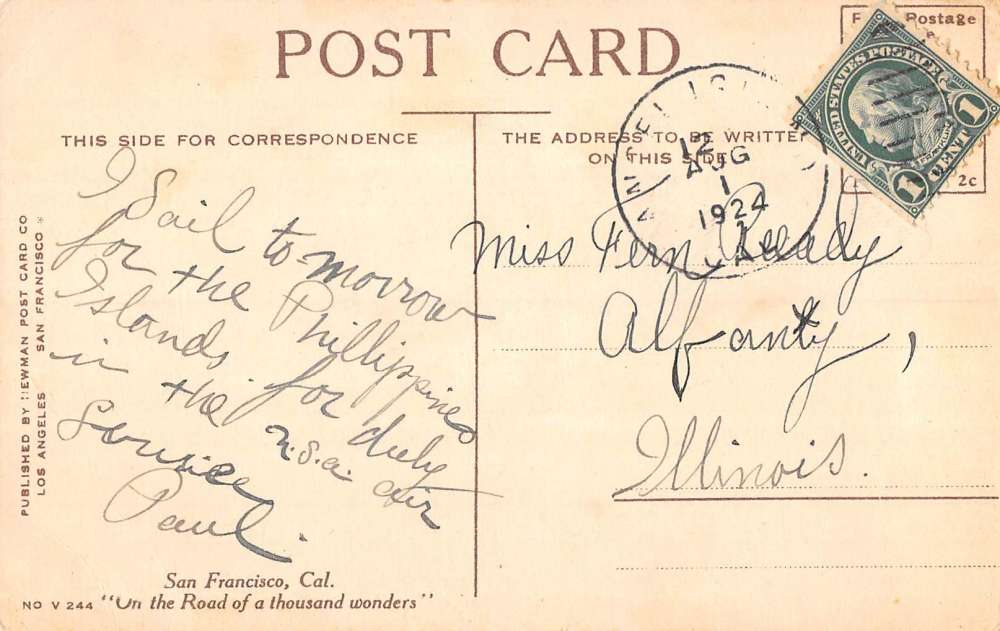 POST CARD
THIS SIDE FOR CORRESPONDENCE
THE ADDRESS TO BE WRITTEN
ON THIS SIDE
Postage
2c
UNITED STATES POSTAGE
FRANKLIN
1 CENT 1
12
AUG
1
1924
I Sail to-morrow
for the Phillippines
Islands for duty
in the U.S.A. Air
Service
Paul.
Miss Fern
Illinois.
PUBLISHED BY NEWMAN POST CARD CO
LOS ANGELES SAN FRANCISCO
San Francisco, Cal.
NO V 244 "On the Road of a thousand wonders"